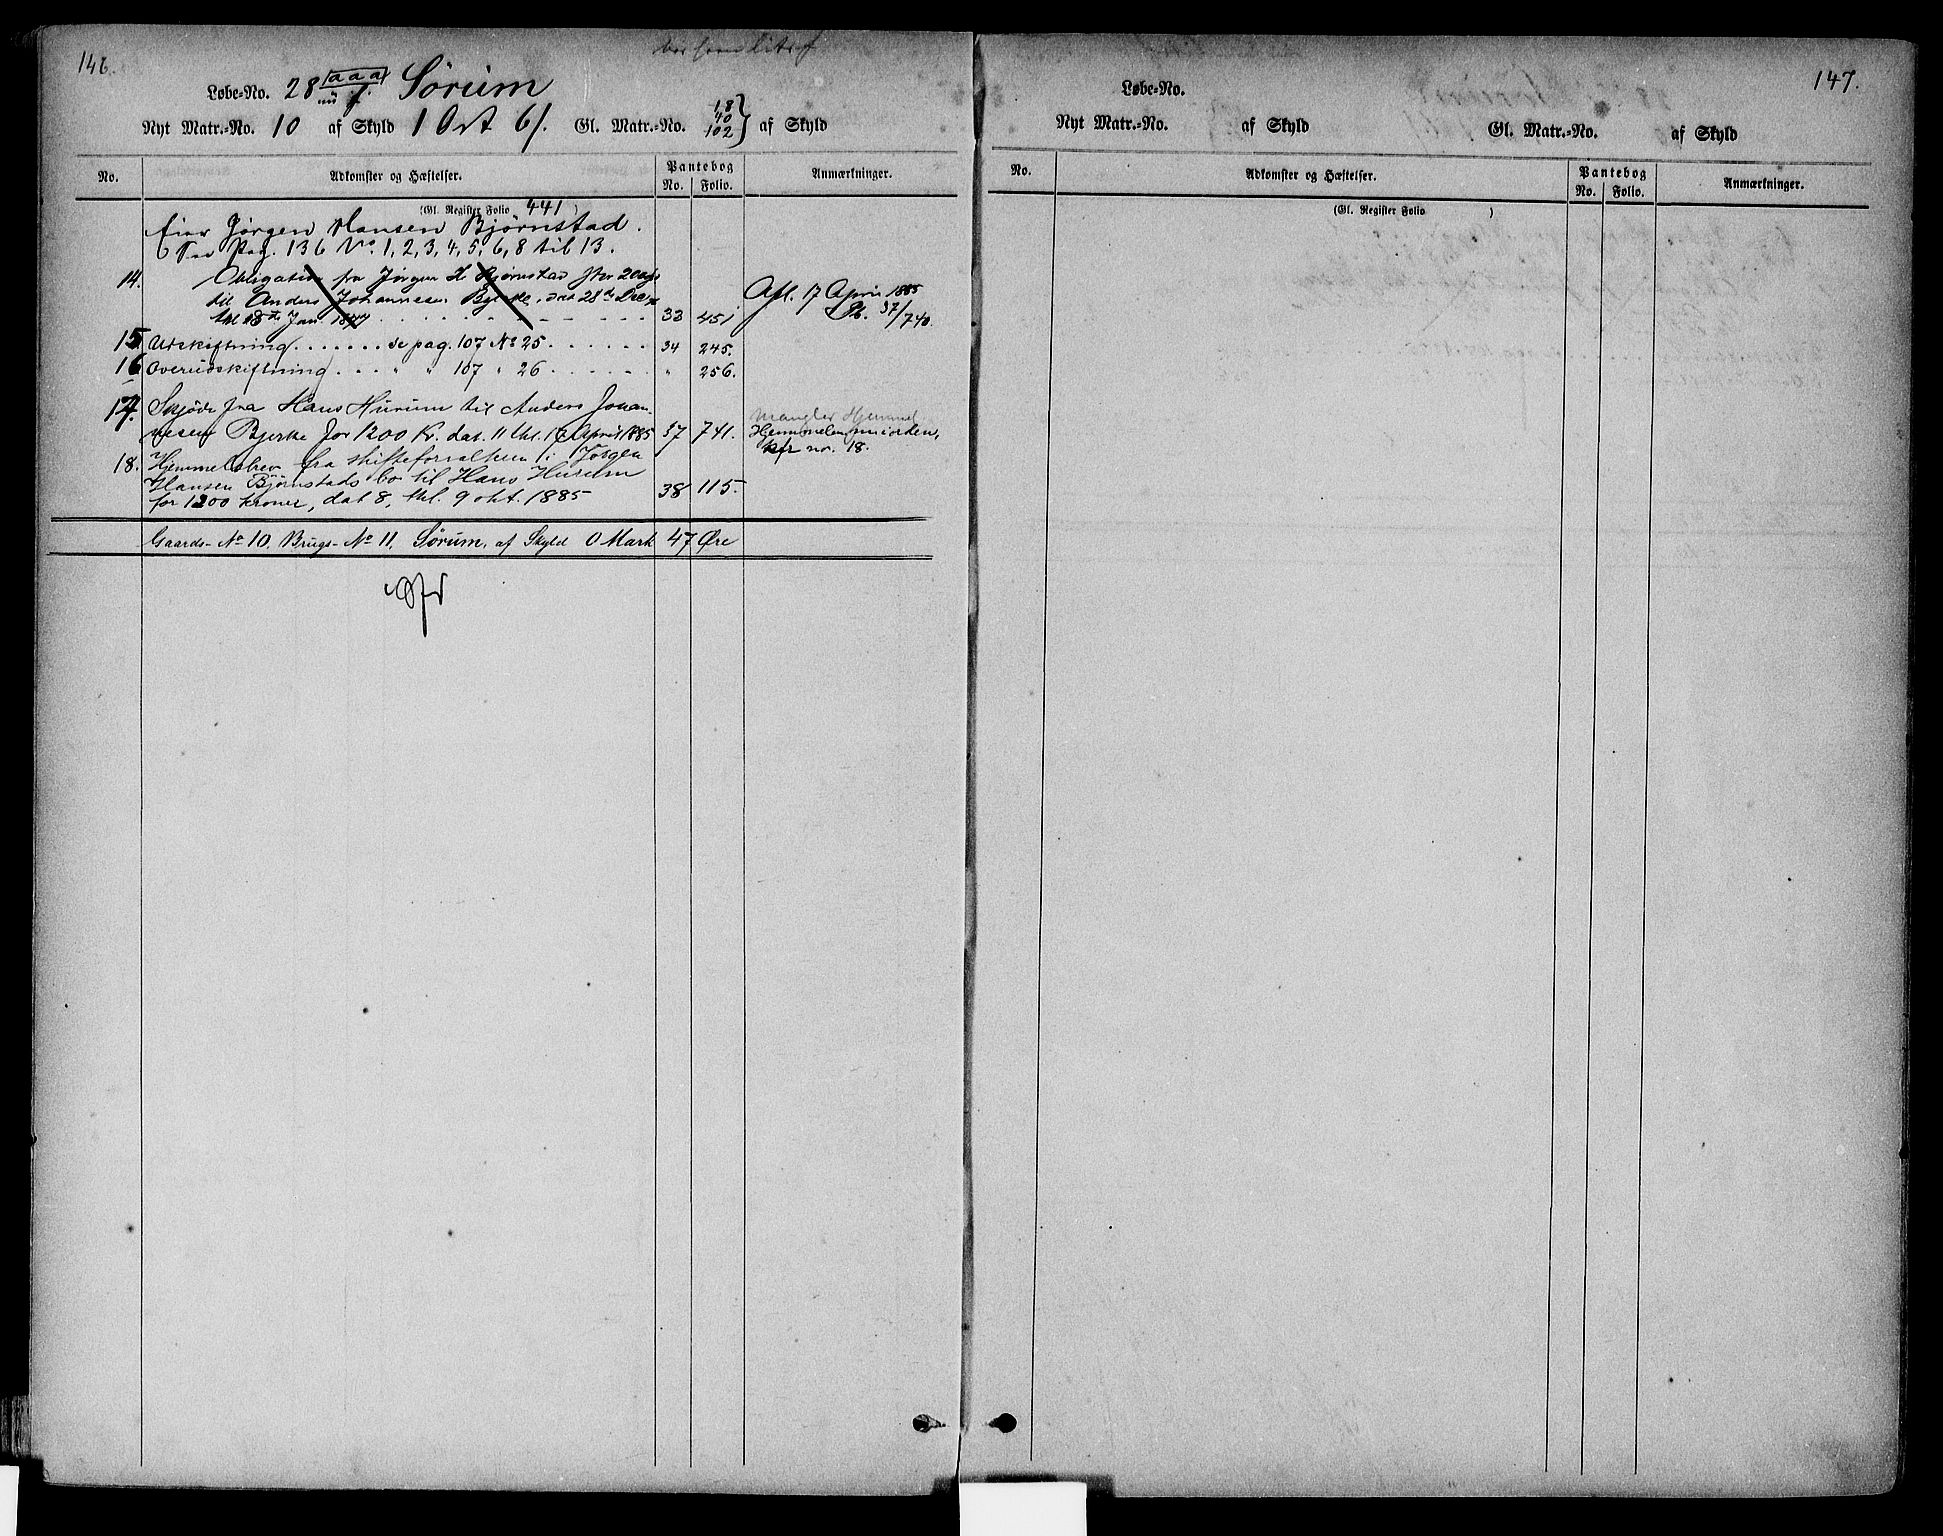 146.
Løbe-No. 28 aaa Sørum
Nyt Matr.-No. 10 af Skyld 1 Ort 6/. Gl. Matr.-No. 18 40 102 } af Skyld
No. Adkomster og Hæftelser. Pantebog No. Folio. Anmærkninger.
(Gl. Register Folio 441 )
Eier Jørgen Hansen Bjørnstad.
Pag. 136 No. 1, 2, 3, 4, 5, 6, 8 til 13.
14. Obligation fra Jørgen H. Bjørnstad
til Anders Johannesen Bjerke, dat 28de Dec,
thl 18de Jan. 1877 33 451
Afl. 17 April 1885
Pb. 37/740.
15. Utskiftning . . . . . . . se pag. 107 No 25 . . . . . . 34 245.
16 Overudskiftning . . . " " 107 " 26 . . . . . . " 256.
17. Skjøde fra Hans Hurum til Anders Johan-
nesen Bjerke for 1200 Kr. dat. 11 thl. 17 April 1885 37 741.
Mangler Hjemmel
kfr no. 18.
18. Hjemmelsbrev fra skifteforvalteren i Jørgen
Hansen Bjørnstads bo til Hans Hurum
for 1200 kroner, dat 8, thl. 9 okt. 1885 38 115.
Gaards-No 10. Brugs-No 11. Sørum, af Skyld 0 Mark 47 Øre
147.
Løbe-No.
Nyt Matr.-No. af Skyld Gl. Matr.-No. af Skyld
No. Adkomster og Hæftelser. Pantebog No. Folio. Anmærkninger.
(Gl. Register Folio )